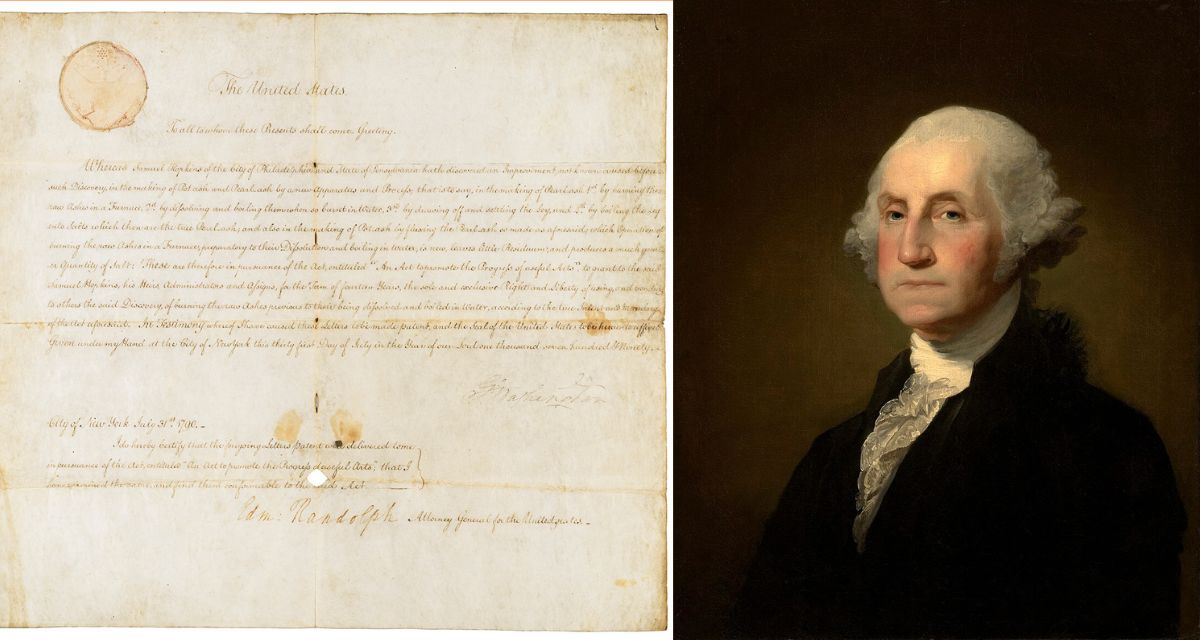 The United States.
To all to whom these Presents shall come, Greeting.
Whereas Samuel Hopkins of the City of Philadelphia and State of Pensylvania hath discovered an Improvement, not known or used before
such Discovery, in the making of Pot ash and Pearl ash by a new Apparatus and Process; that is to say, in the making of Pearl ash 1st. by burning the
raw Ashes in a Furnace, 2d. by dissolving and boiling them when so burnt in Water, 3rd. by drawing off and settling the Ley, and 4th. by boiling the Ley
into Salts which then are the true Pearl ash; and also in the making of Pot ash by fluxing the Pearl ash so made as aforesaid; which Operation of
burning the raw Ashes in a Furnace, preparatory to their Dissolution and boiling in Water, is new, leaves little Residuum; and produces a much great-
er Quantity of Salt: These are therefore in pursuance of the Act, entituled "An Act to promote the Progress of useful Arts", to grant to the said
Samuel Hopkins, his Heirs, Administrators and Assigns, for the Term of fourteen Years, the sole and exclusive Right and Liberty of using, and vending
to others the said Discovery, of burning the raw Ashes previous to their being dissolved and boiled in Water, according to the true Intent and meaning
of the Act aforesaid. In Testimony whereof I have caused these Letters to be made patent, and the Seal of the United States to be hereunto affixed
Given under my Hand at the City of New York this thirty first Day of July in the Year of our Lord one thousand seven hundred & Ninety.
G. Washington
City of New York July 31st. 1790. -
I do hereby certify that the foregoing Letters patent were delivered to me
in pursuance of the Act, entituled "An Act to promote the Progress of useful Arts"; that I
have examined the same, and find them conformable to the said Act.
Edm: Randolph Attorney General for the United States. -